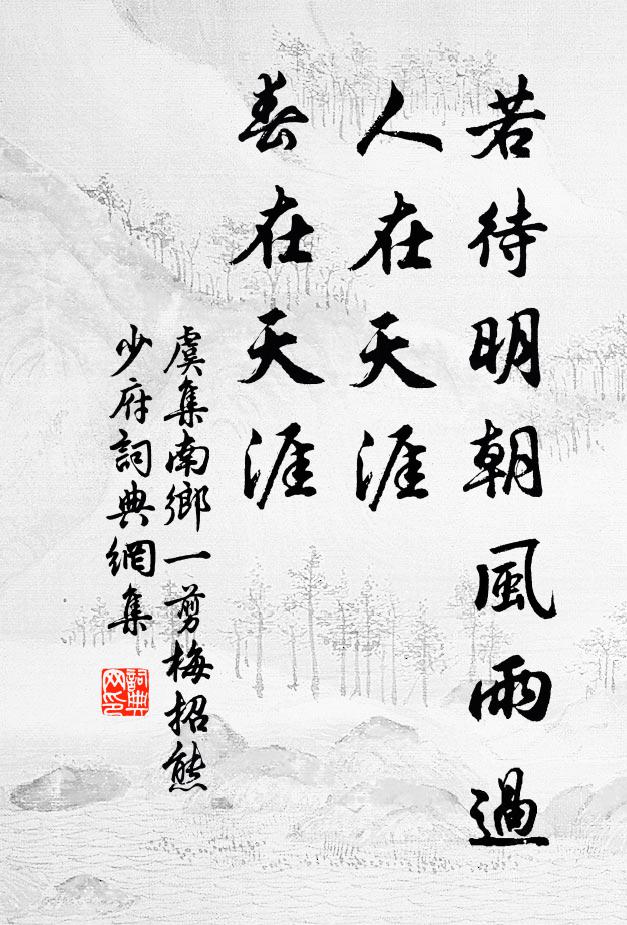 若待明朝風雨過
人在天涯
春在天涯
虞集南鄉一剪梅招熊
少府詞典網集
詞典
网印